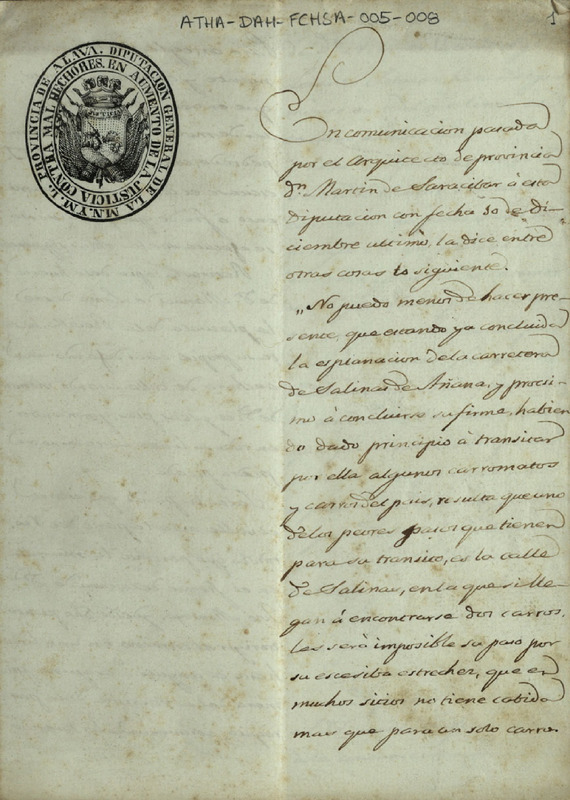 ATHA-DAH-FCHSA-005-008
1
PROVINCIA DE ALAVA. DIPUTACION GENERAL DE LA M.N.Y M.L.
CONTRA MALHECHORES. EN AUMENTO DE LA JUSTICIA
En comunicacion pasada
por el Arquitecto de provincia
Dn. Martin de Saracibar á esta
Diputacion con fecha 30 de Di-
ciembre ultimo, la dice entre
otras cosas lo siguiente.
"No puedo menos de hacer pre-
sente, que estando ya concluida
la esplanacion de la carretera
de Salinas de Añana, y procsi-
mo á concluirse su firme, habien
do dado principio á transitar
por ella algunos carromatos
y carros del pais, resulta que uno
de los peores pasos que tienen
para su transito, es la calle
de Salinas, en la que si lle-
gan á encontrarse dos carros,
les será imposible su paso por
su escesiba estrechez, que en
muchos sitios no tiene cabida
mas que para un solo carro.